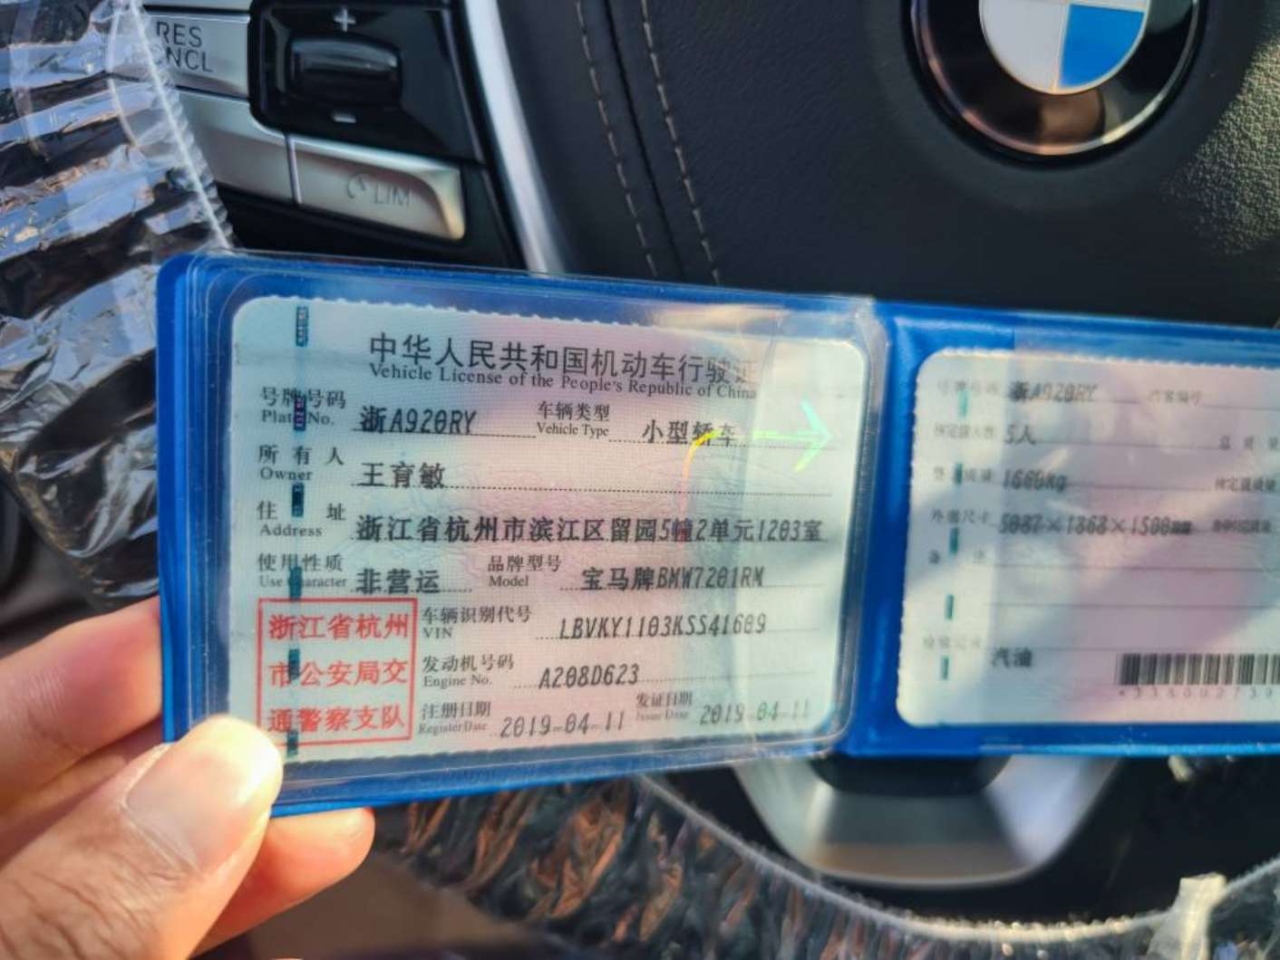 RES
CNCL
+
−
LIM
中华人民共和国机动车行驶证
Vehicle License of the People's Republic of China
号牌号码 浙A920RY 车辆类型 小型轿车
Plate No. Vehicle Type
所有人 王育敏
Owner
住址 浙江省杭州市滨江区留园5幢2单元1203室
Address
使用性质 非营运 品牌型号 宝马牌BMW7201RM
Use Character Model
浙江省杭州
市公安局交
通警察支队
车辆识别代号 LBVKY1103KSS41609
VIN
发动机号码 A208D623
Engine No.
注册日期 2019-04-11 发证日期 2019-04-11
Register Date Issue Date
号牌号码 浙A920RY 档案编号
核定载人数 5人
整备质量 1660kg
外廓尺寸 5087×1868×1500mm
备注
检验记录
汽油